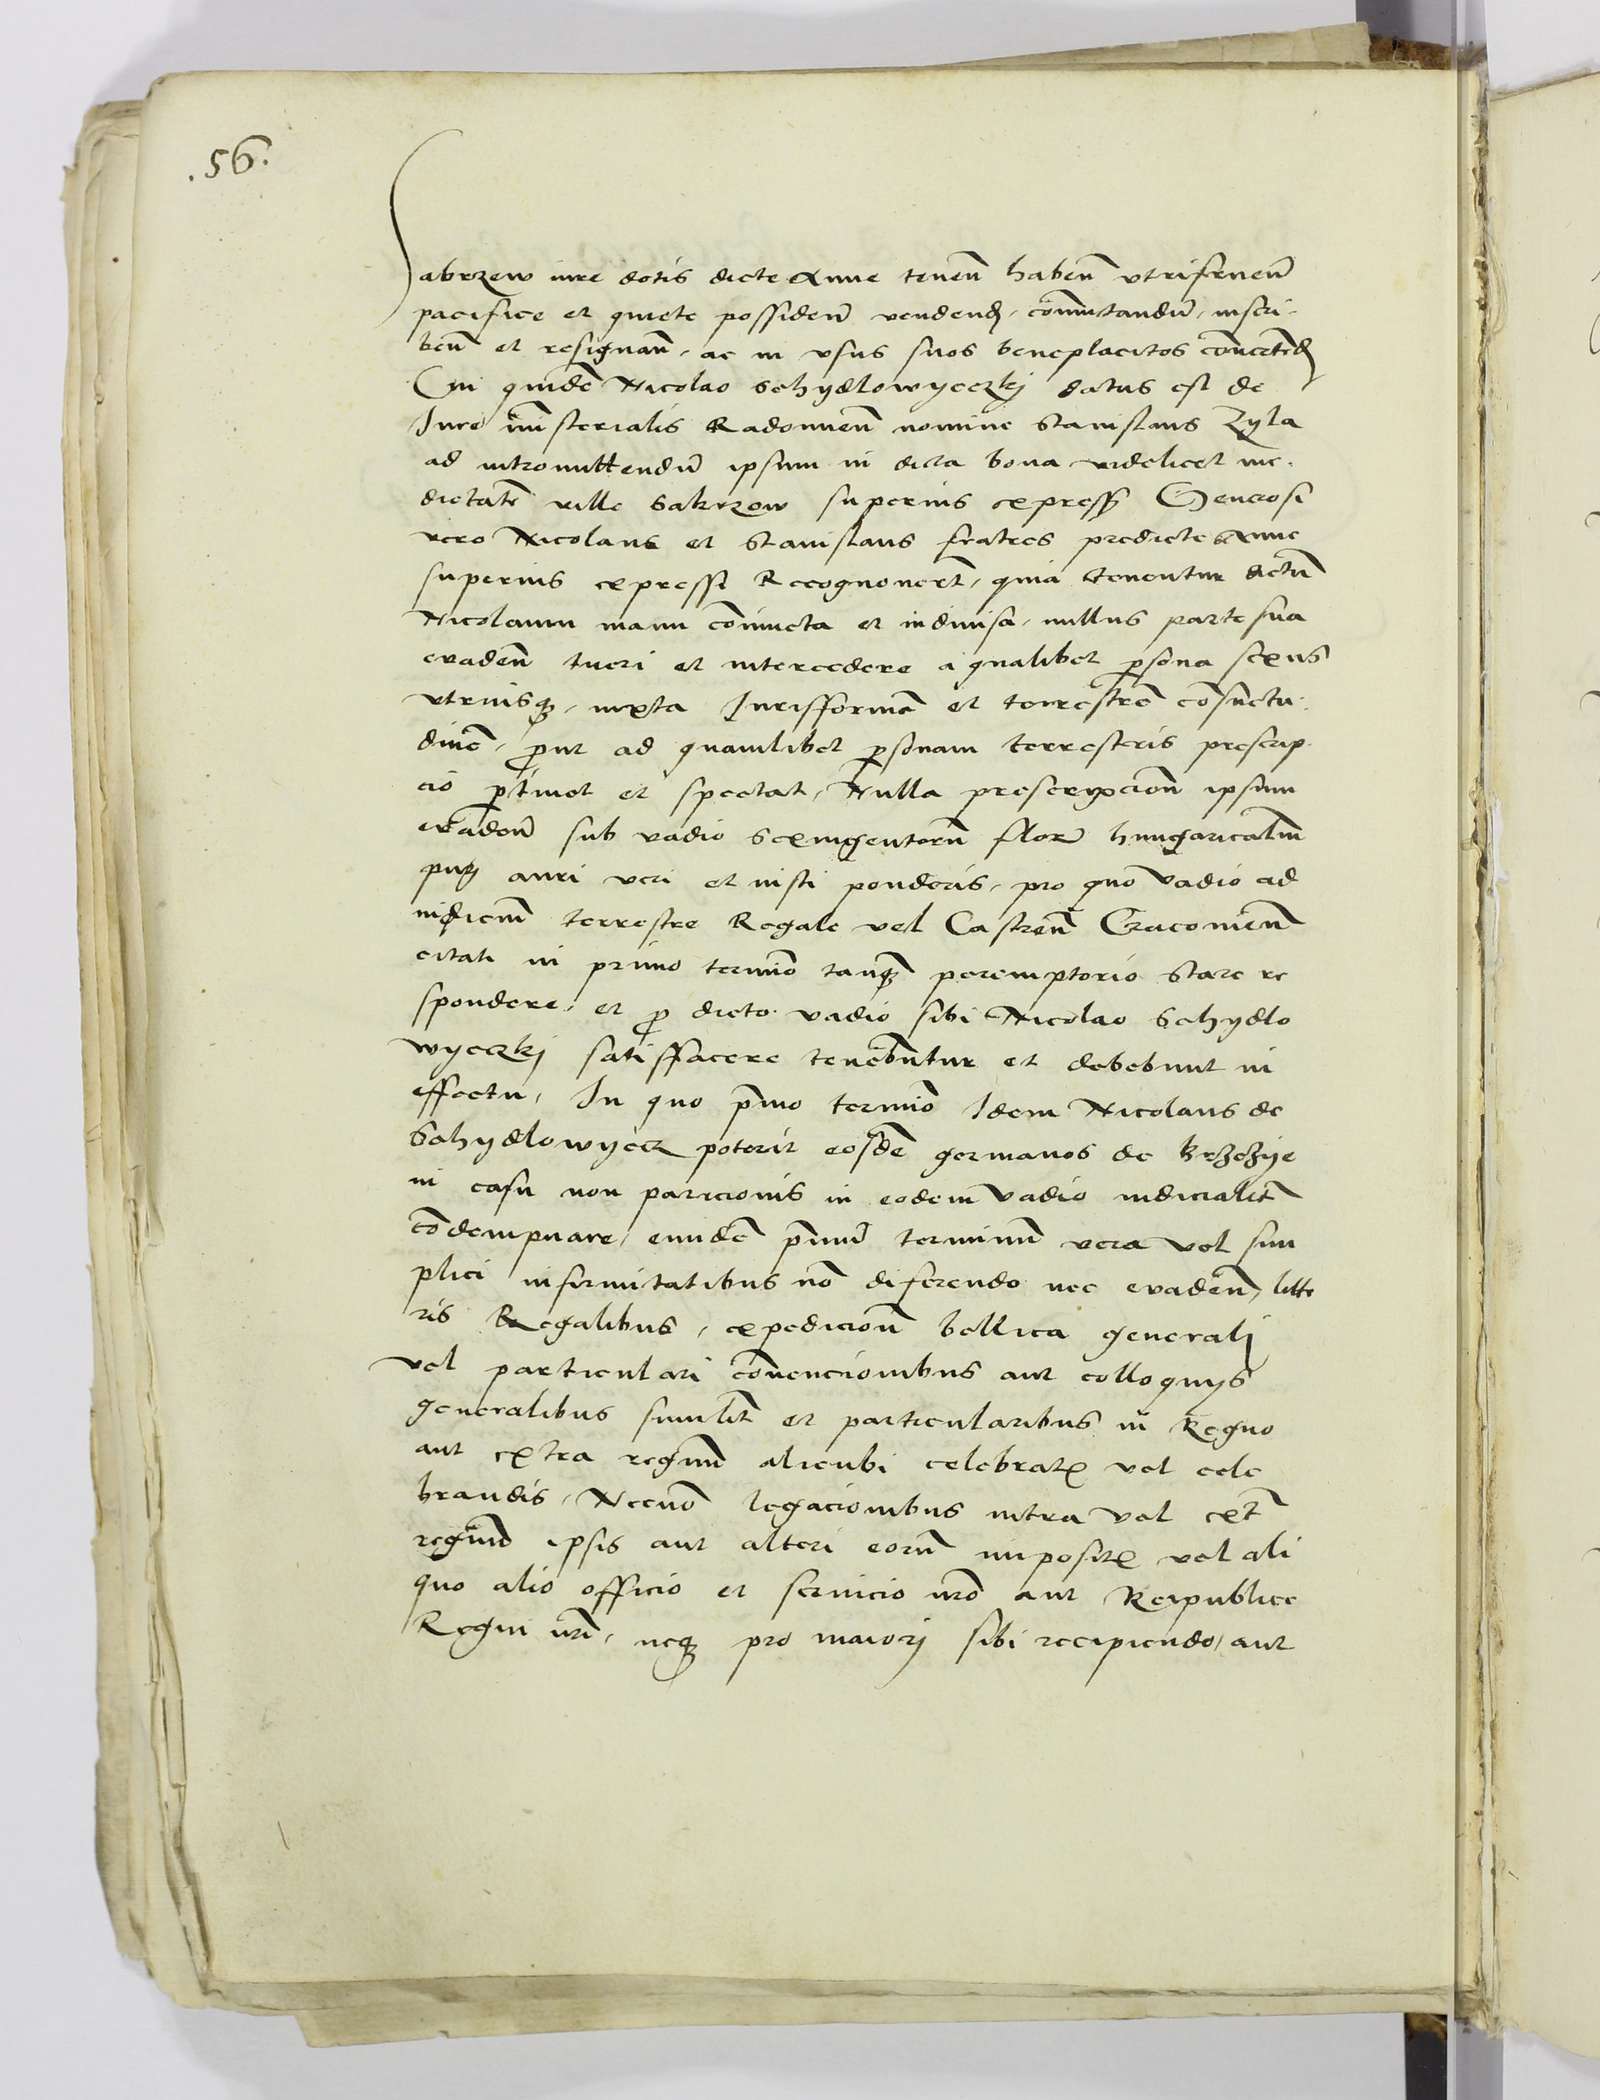 .56.
Sabrzew iure dotis dicte Anne tenen̄ haben̄ vtrifruen̄
pacifice et quiete possiden̄ vendend̄, com̄utandū, inscri-
ben̄ et resignan̄, ac in vsus suos beneplacitos conūtend̄
Cui quidē Nicolao Schydlowyeczkj datus est de
Jure mīsterialis Radomien̄ nomine Stanislaus Zyla
ad intromittendū ipsum in dicta bona videlicet me-
dietatē ville Sabrzew superius express̄ Generosi
vero Nicolaus et Stanislaus fratres predicte Anne
superius expressi Recognouert̄, quia tenentur dictū
Nicolaum manu cōiuncta et indiuisa, nullus parte sua
euaden̄ tueri et intercedere a qualibet p̄sona sexus
vtriusq̄, iuxta Jurisformā et terrestrē cōsuetu-
dinē, p̄ut ad quamlibet p̄sonam terrestris prescrip-
cio p̄tinet et spectat, Nulla prescripcion̄ ipsum
euaden̄ sub vadio Sexingentorū flor̄ hungaricaliū
puri auri veri et iusti ponderis, pro quo vadio ad
iudiciū terrestre Regale vel Castren̄ Cracouien̄
citati in primo termīo tanq̄ peremptorio stare re
spondere, et p̄ dicto vadio sibi Nicolao Schydlo
wyeczkj satisfacere tenebūtur et debebunt in
effectu, In quo p̄mo termīo Idem Nicolaus de
Schydlowyecz poterit eosdē germanos de Brzezye
in casu non paricionis in eodem vadio iudicialit̄
cōdempnare, eundē p̄mū terminū vera vel sim
plici infirmitatibus nō diferendo nec euaden̄, litte
ris Regalibus, expedicion̄ bellica generalj
vel particulari cōuencionibus aut colloquijs
generalibus similit̄ et particularibus in Regno
aut extra regnū alicubi celebrat̄ vel cele
brandis, Necnō legacionibus intra vel ext̄
regnū ipsis aut alteri eorū imposit̄ vel ali
quo alio officio et seruicio nr̄o aut Reipublice
Regni nr̄i, neq̄ pro maiorj sibi recipiendo, aut